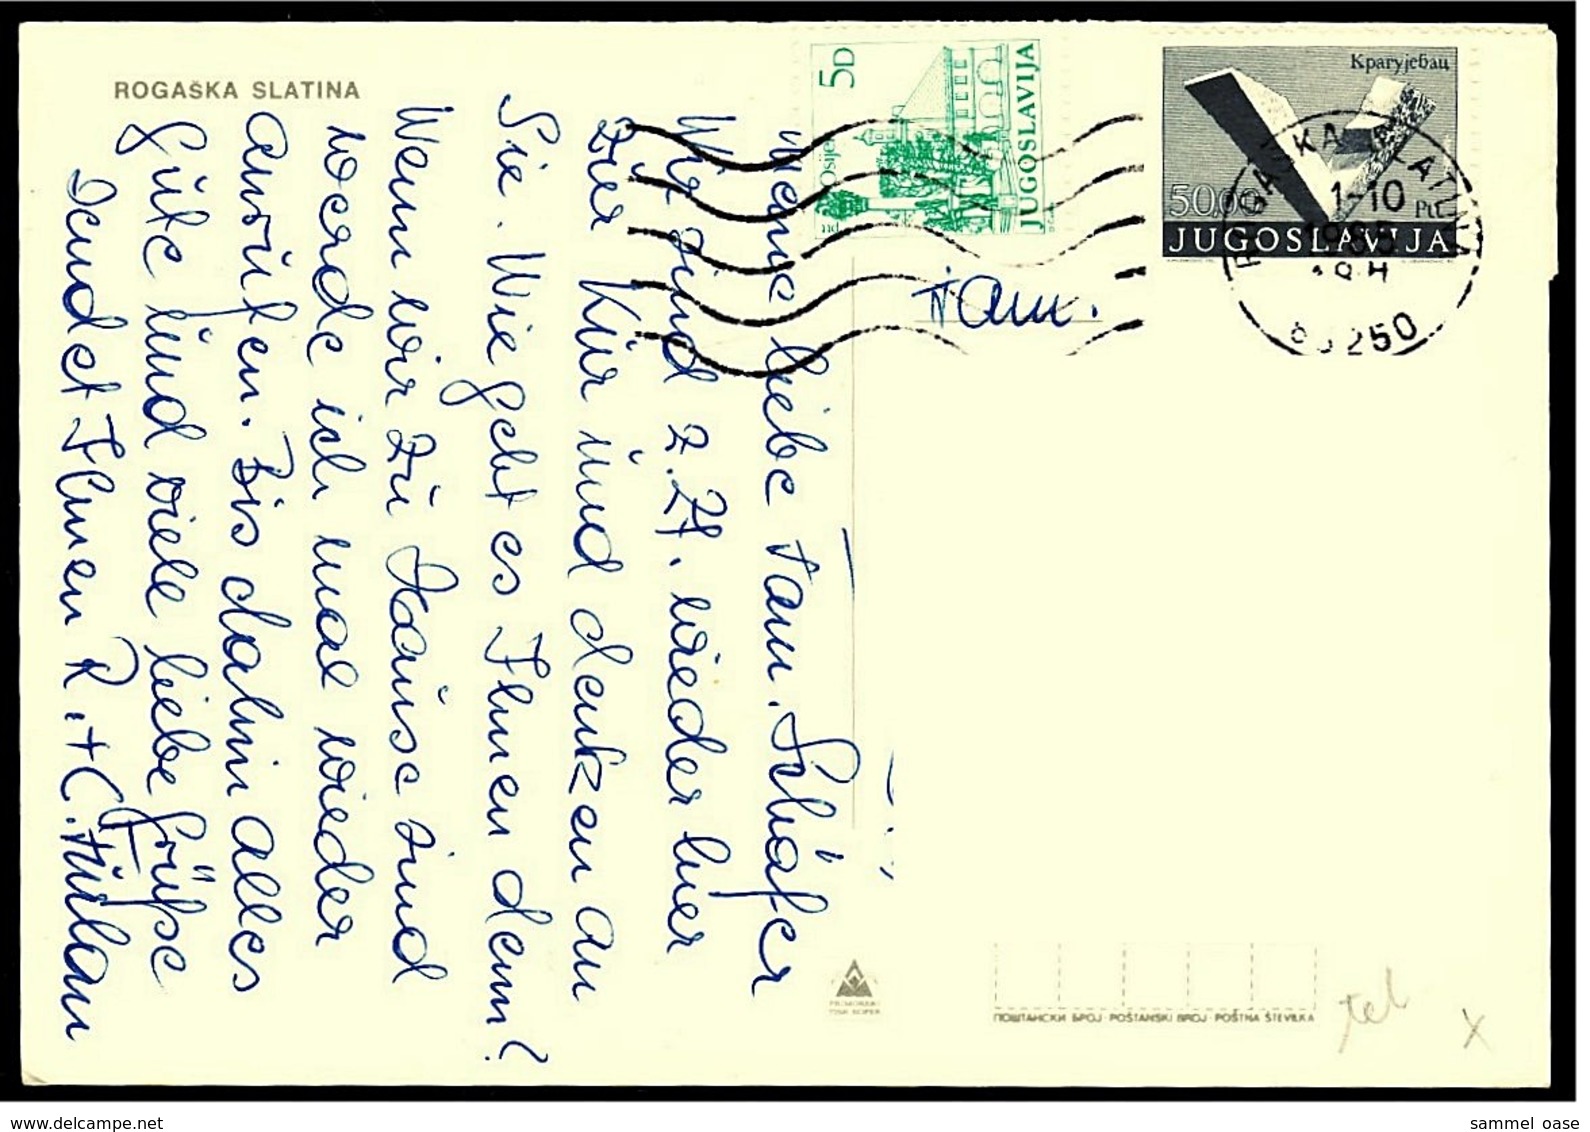 ROGAŠKA SLATINA
5D
Osijek
JUGOSLAVIJA
Крагујевац
50,00
JUGOSLAVIJA
ROGAŠKA SLATINA
1-10
18H
63250
Fam.
Meine liebe Fam. Schäfer
Wir sind z. Zt. wieder hier
zur Kur und denken an
Sie. Wie geht es Ihnen denn?
Wenn wir zu Hause sind
werde ich mal wieder
anrufen. Bis dahin alles
Gute und viele liebe Grüße
sendet Ihnen R. + C. Furlan
ПОШТАНСКИ БРОЈ · POŠTANSKI BROJ · POŠTNA ŠTEVILKA
tel
x
www.delcampe.net
sammel_oase